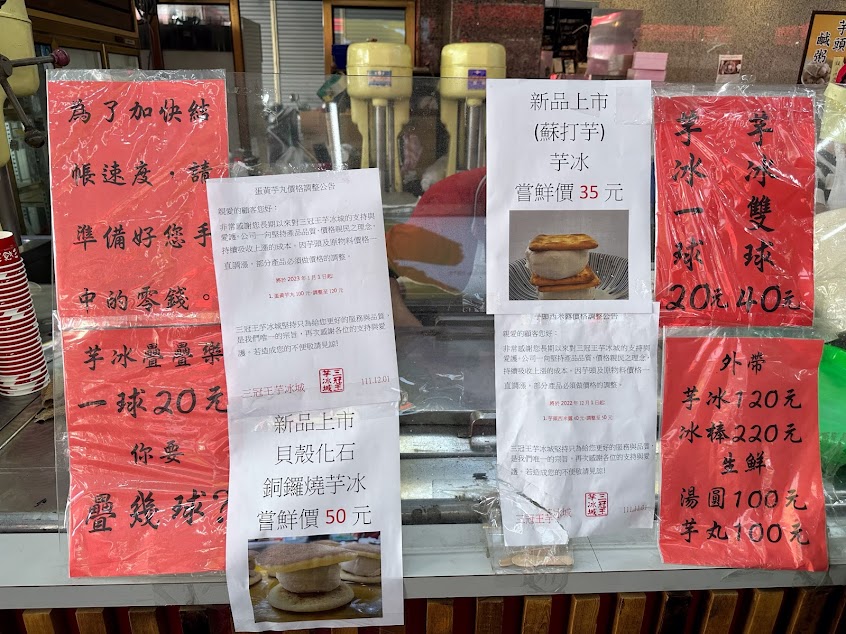 為了加快結
帳速度,請
準備好您手
中的零錢。
芋冰疊疊樂
一球20元
你要
疊幾球?
親愛的顧客您好:
非常感謝您長期以來對三冠王芋冰城的支持與
愛護,公司一向堅持產品品質,價格親民之理念,
持續吸收上漲的成本。因芋頭及原物料價格一
直調漲,部分產品必須做價格的調整。
三冠王芋冰城堅持只為給您更好的服務與品質,
是我們唯一的宗旨,再次感謝各位的支持與愛
護,若造成您的不便敬請見諒!
三冠王芋冰城
三冠王
芋冰城
111.12.01
新品上市
貝殼化石
銅鑼燒芋冰
嘗鮮價 50 元
新品上市
(蘇打芋)
芋冰
嘗鮮價 35 元
親愛的顧客您好:
非常感謝您長期以來對三冠王芋冰城的支持與
愛護,公司一向堅持產品品質,價格親民之理念,
持續吸收上漲的成本。因芋頭及原物料價格一
直調漲,部分產品必須做價格的調整。
三冠王芋冰城堅持只為給您更好的服務與品質,
是我們唯一的宗旨,再次感謝各位的支持與愛
護,若造成您的不便敬請見諒!
三冠王芋冰城
三冠王
芋冰城
芋冰雙球
40元
芋冰一球
20元
外帶
芋冰120元
冰棒220元
生鮮
湯圓100元
芋丸100元
芋頭
鹹粥